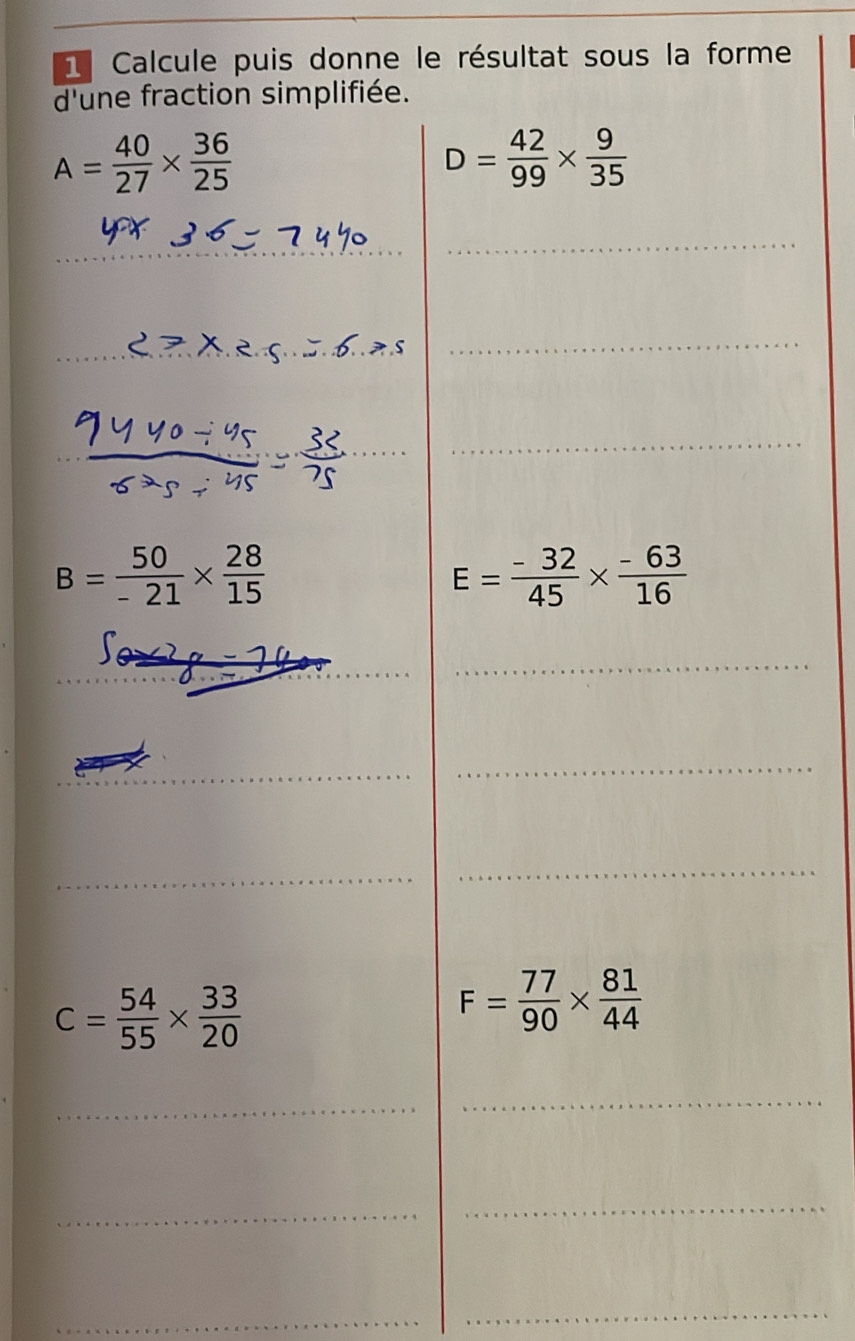 1 Calcule puis donne le résultat sous la forme
d'une fraction simplifiée.
A = 40/27 × 36/25
40 × 36 = 1440
27 × 25 = 675
1440 ÷ 45 / 675 ÷ 45 = 32/15
B = 50/- 21 × 28/15
50×28 = 1400
C = 54/55 × 33/20
D = 42/99 × 9/35
E = - 32/45 × - 63/16
F = 77/90 × 81/44